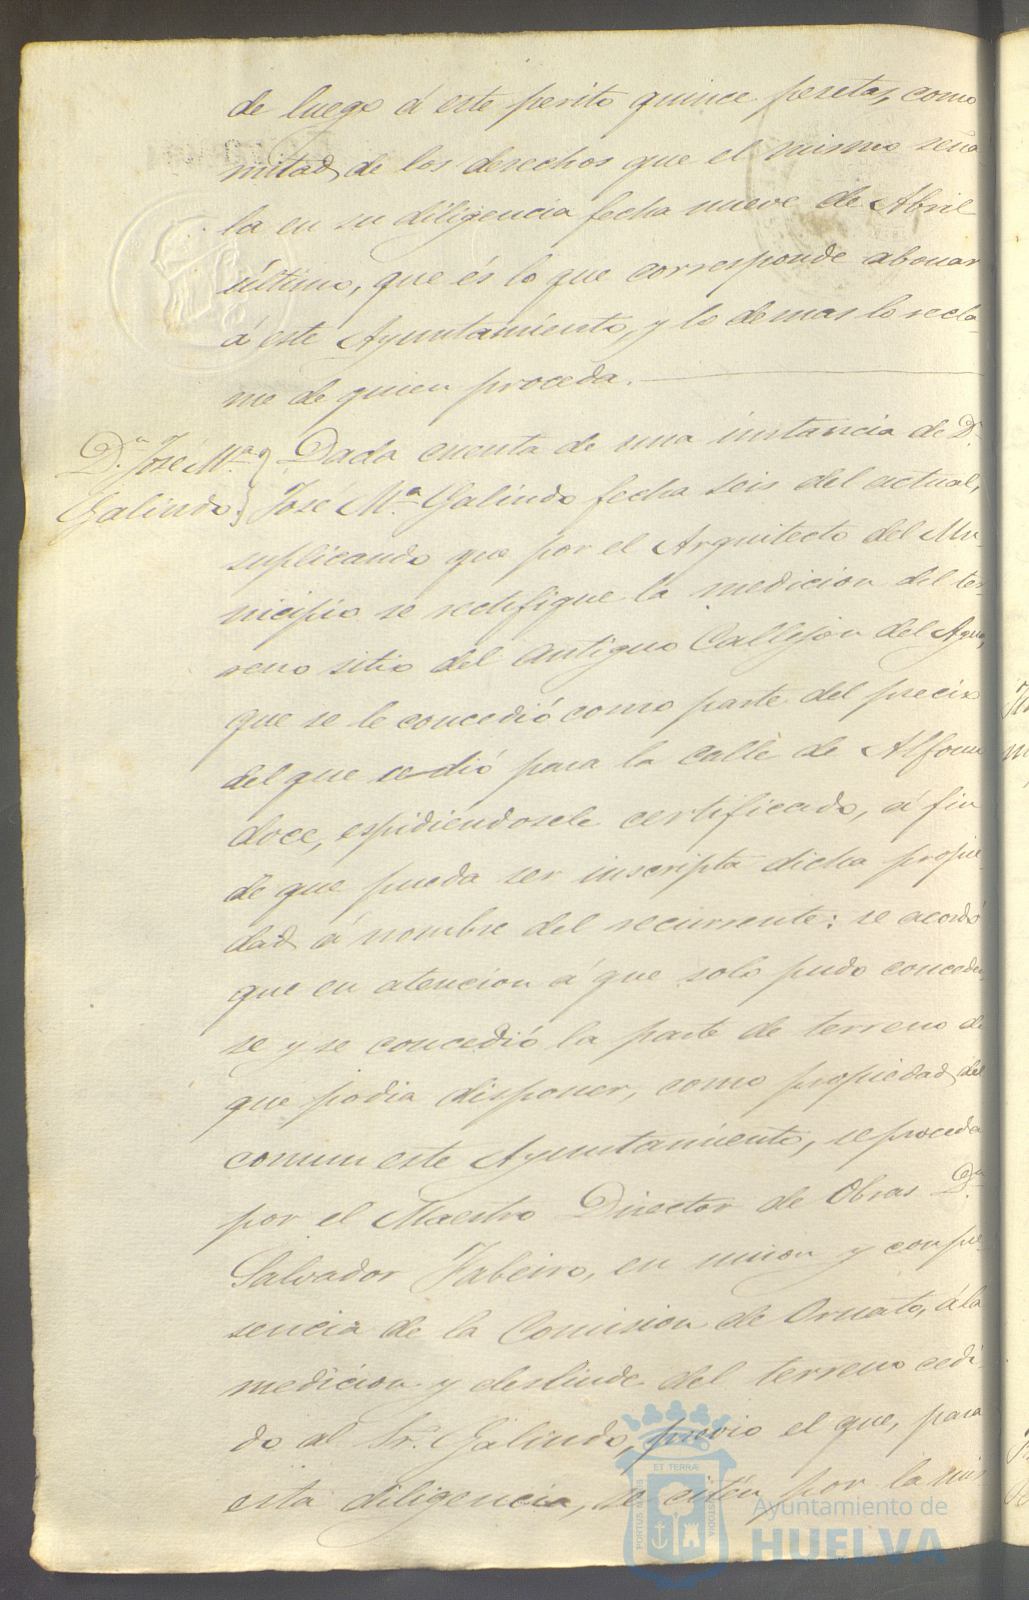 de luego á este perito quince pesetas, como
mitad de los derechos que el mismo seña-
la en su diligencia fecha nueve de Abril
último, que és lo que corresponde abonar
á este Ayuntamiento, y lo demas lo recla-
me de quien proceda.
D.n José M.a
Galindo.
Dada cuenta de una instancia de D.n
José M.a Galindo fecha seis del actual,
suplicando que por el Arquitecto del Mu-
nicipio se rectifique la medicion del ter-
reno sitio del antiguo Callejon del Agua,
que se le concedió como parte del precio
del que cedió para la calle de Alfonso
doce, espidiendosele certificado, á fin
de que pueda ser inscripta dicha propie-
dad á nombre del recurrente: se acordó
que en atencion á que solo pudo conceder-
se y se concedió la parte de terreno de
que podia disponer, como propiedad del
comun este Ayuntamiento, se proceda
por el Maestro Director de Obras D.n
Salvador Fabeiro, en union y con pre-
sencia de la Comision de Ornato, á la
medicion y deslinde del terreno cedi-
do al Sr. Galindo, previo el que, para
esta diligencia, se citen por la mis
PORTUS MARIS ET TERRÆ CUSTODIA
Ayuntamiento de
HUELVA